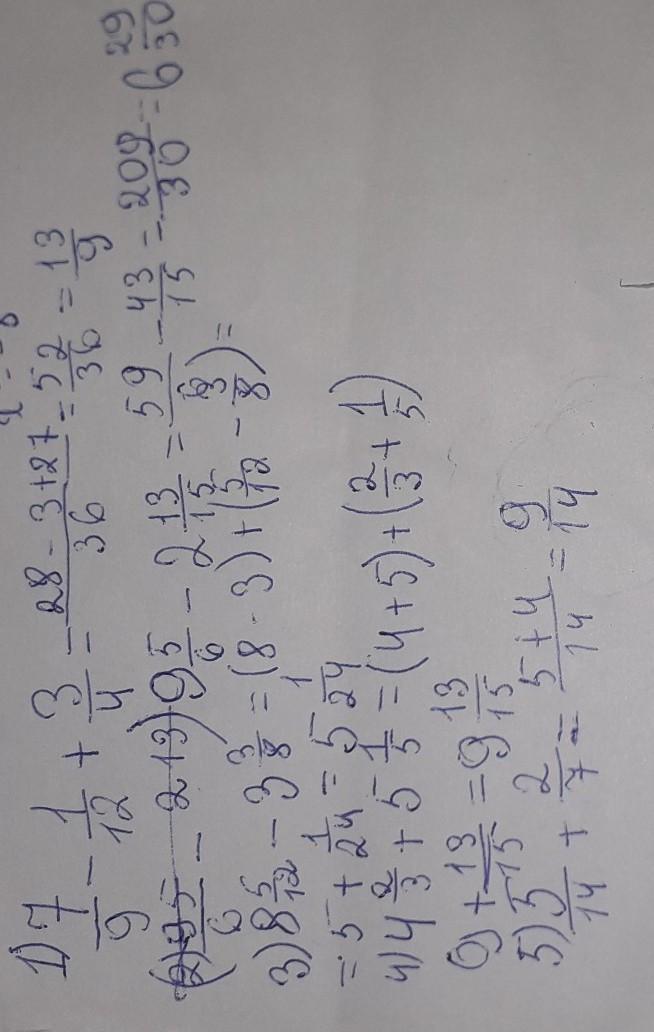 1) 7/9 - 1/12 + 3/4 = 28 - 3 + 27/36 = 52/36 = 13/9
9 5/6 - 2 13/15 = 59/6 - 43/15 = 209/30 = 6 29/30
3) 8 5/12 - 3 3/8 = (8 - 3) + (5/12 - 3/8) =
= 5 + 1/24 = 5 1/24
4) 4 2/3 + 5 1/5 = (4 + 5) + (2/3 + 1/5)
9 + 13/15 = 9 13/15
5) 5/14 + 2/7 = 5 + 4/14 = 9/14